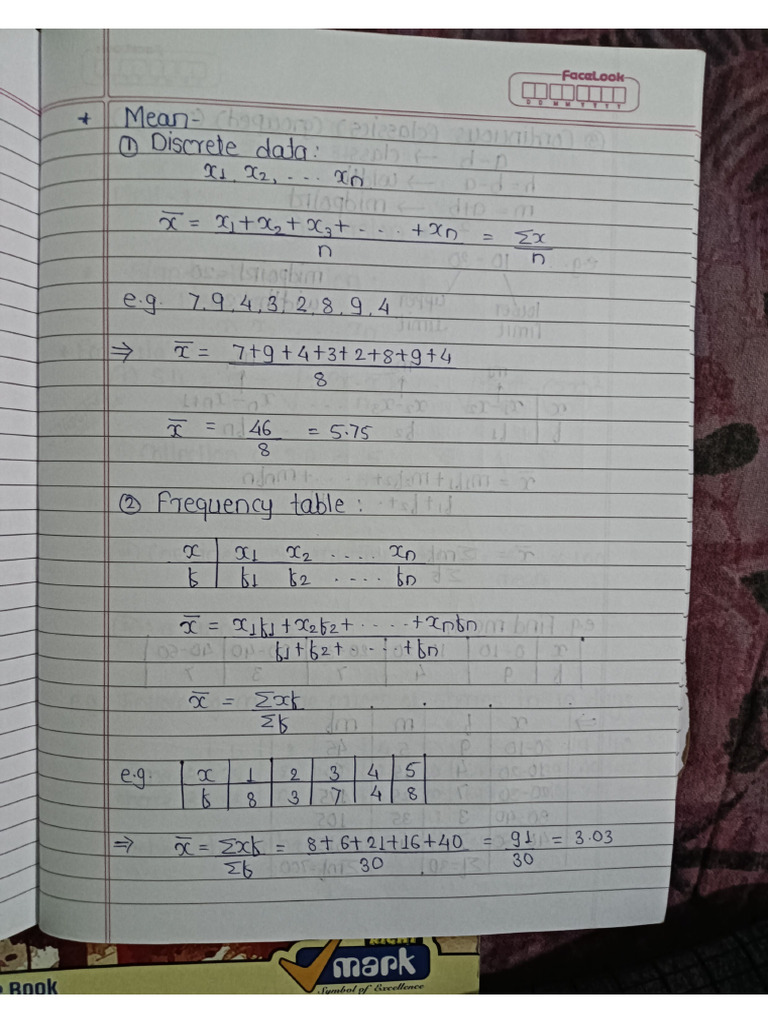 FaceLook
D D M M Y Y Y Y
* Mean-
① Discrete data:
x1, x2, ... xn
x̄ = x1+x2+x3+...+xn / n = Σx / n
e.g. 7, 9, 4, 3, 2, 8, 9, 4
⇒ x̄ = 7+9+4+3+2+8+9+4 / 8
x̄ = 46 / 8 = 5.75
② Frequency table:
x | x1 x2 .... xn
f | f1 f2 .... fn
x̄ = x1f1+x2f2+.....+xnfn / f1+f2+.....+fn
x̄ = Σxf / Σf
e.g. | x | 1 | 2 | 3 | 4 | 5 |
| f | 8 | 3 | 7 | 4 | 8 |
⇒ x̄ = Σxf / Σf = 8+6+21+16+40 / 30 = 91 / 30 = 3.03
RIGHT
mark
Symbol of Excellence
Book